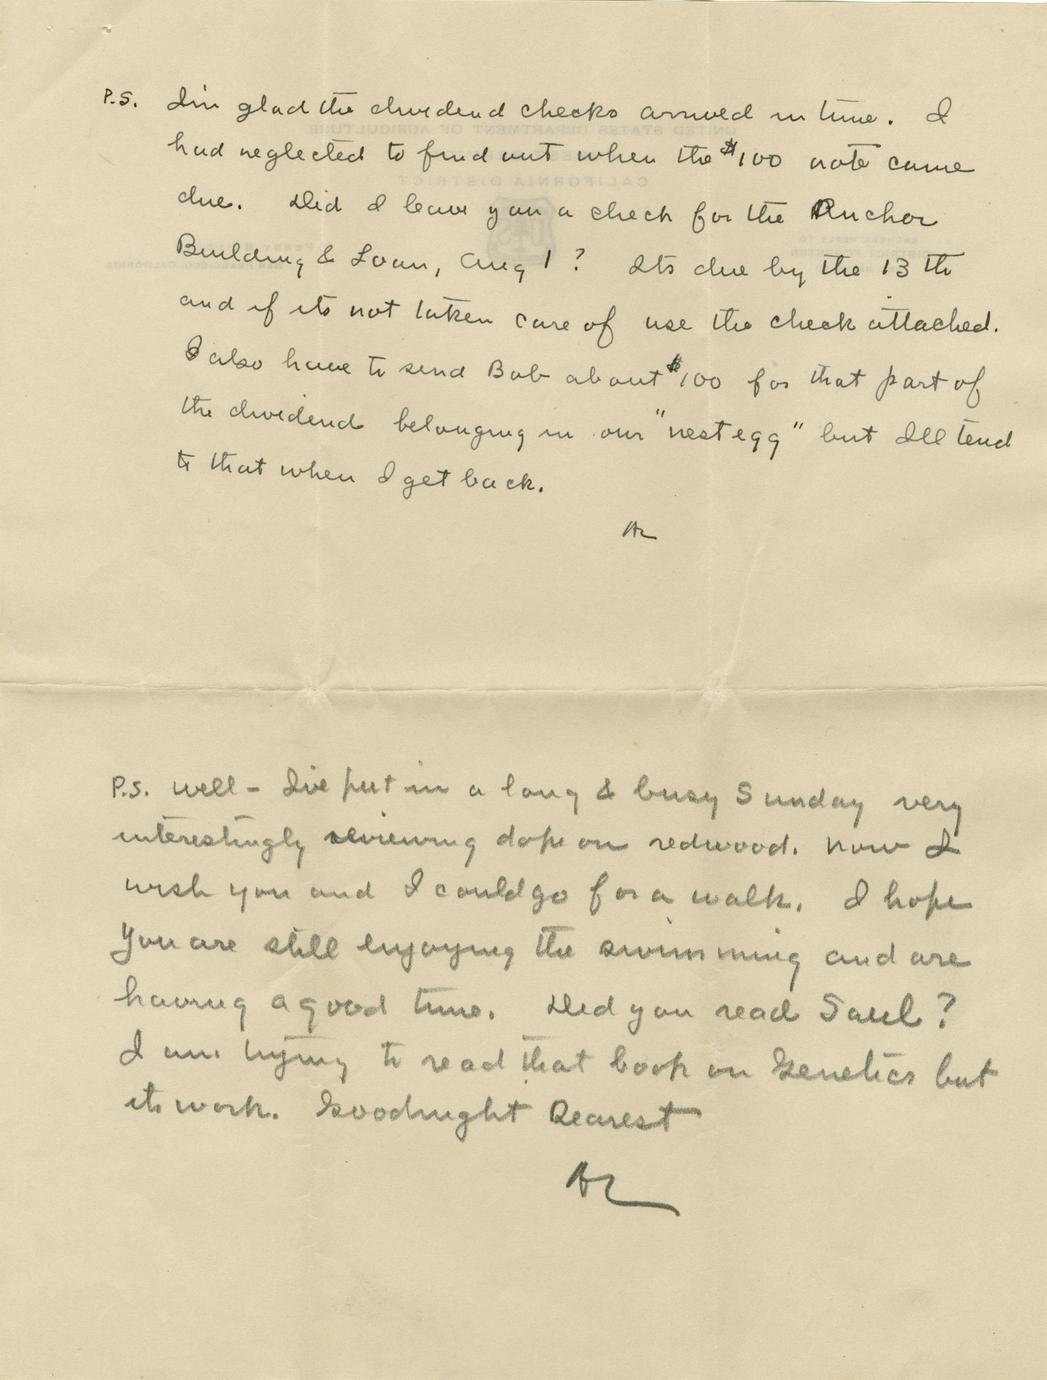 P.S. I'm glad the dividend checks arrived in time. I
had neglected to find out when the $100 note came
due. Did I leave you a check for the Anchor
Building & Loan, Aug 1? Its due by the 13th
and if its not taken care of use the check attached.
I also have to send Bob about $100 for that part of
the dividend belonging in our "nest egg" but I'll tend
to that when I get back.
P.S. Well - I've put in a long & busy Sunday very
interestingly reviewing dope on redwood. Now I
wish you and I could go for a walk. I hope
you are still enjoying the swimming and are
having a good time. Did you read Saul?
I am trying to read that book on Genetics but
its work. Goodnight Dearest
UNITED STATES DEPARTMENT OF AGRICULTURE
CALIFORNIA DISTRICT